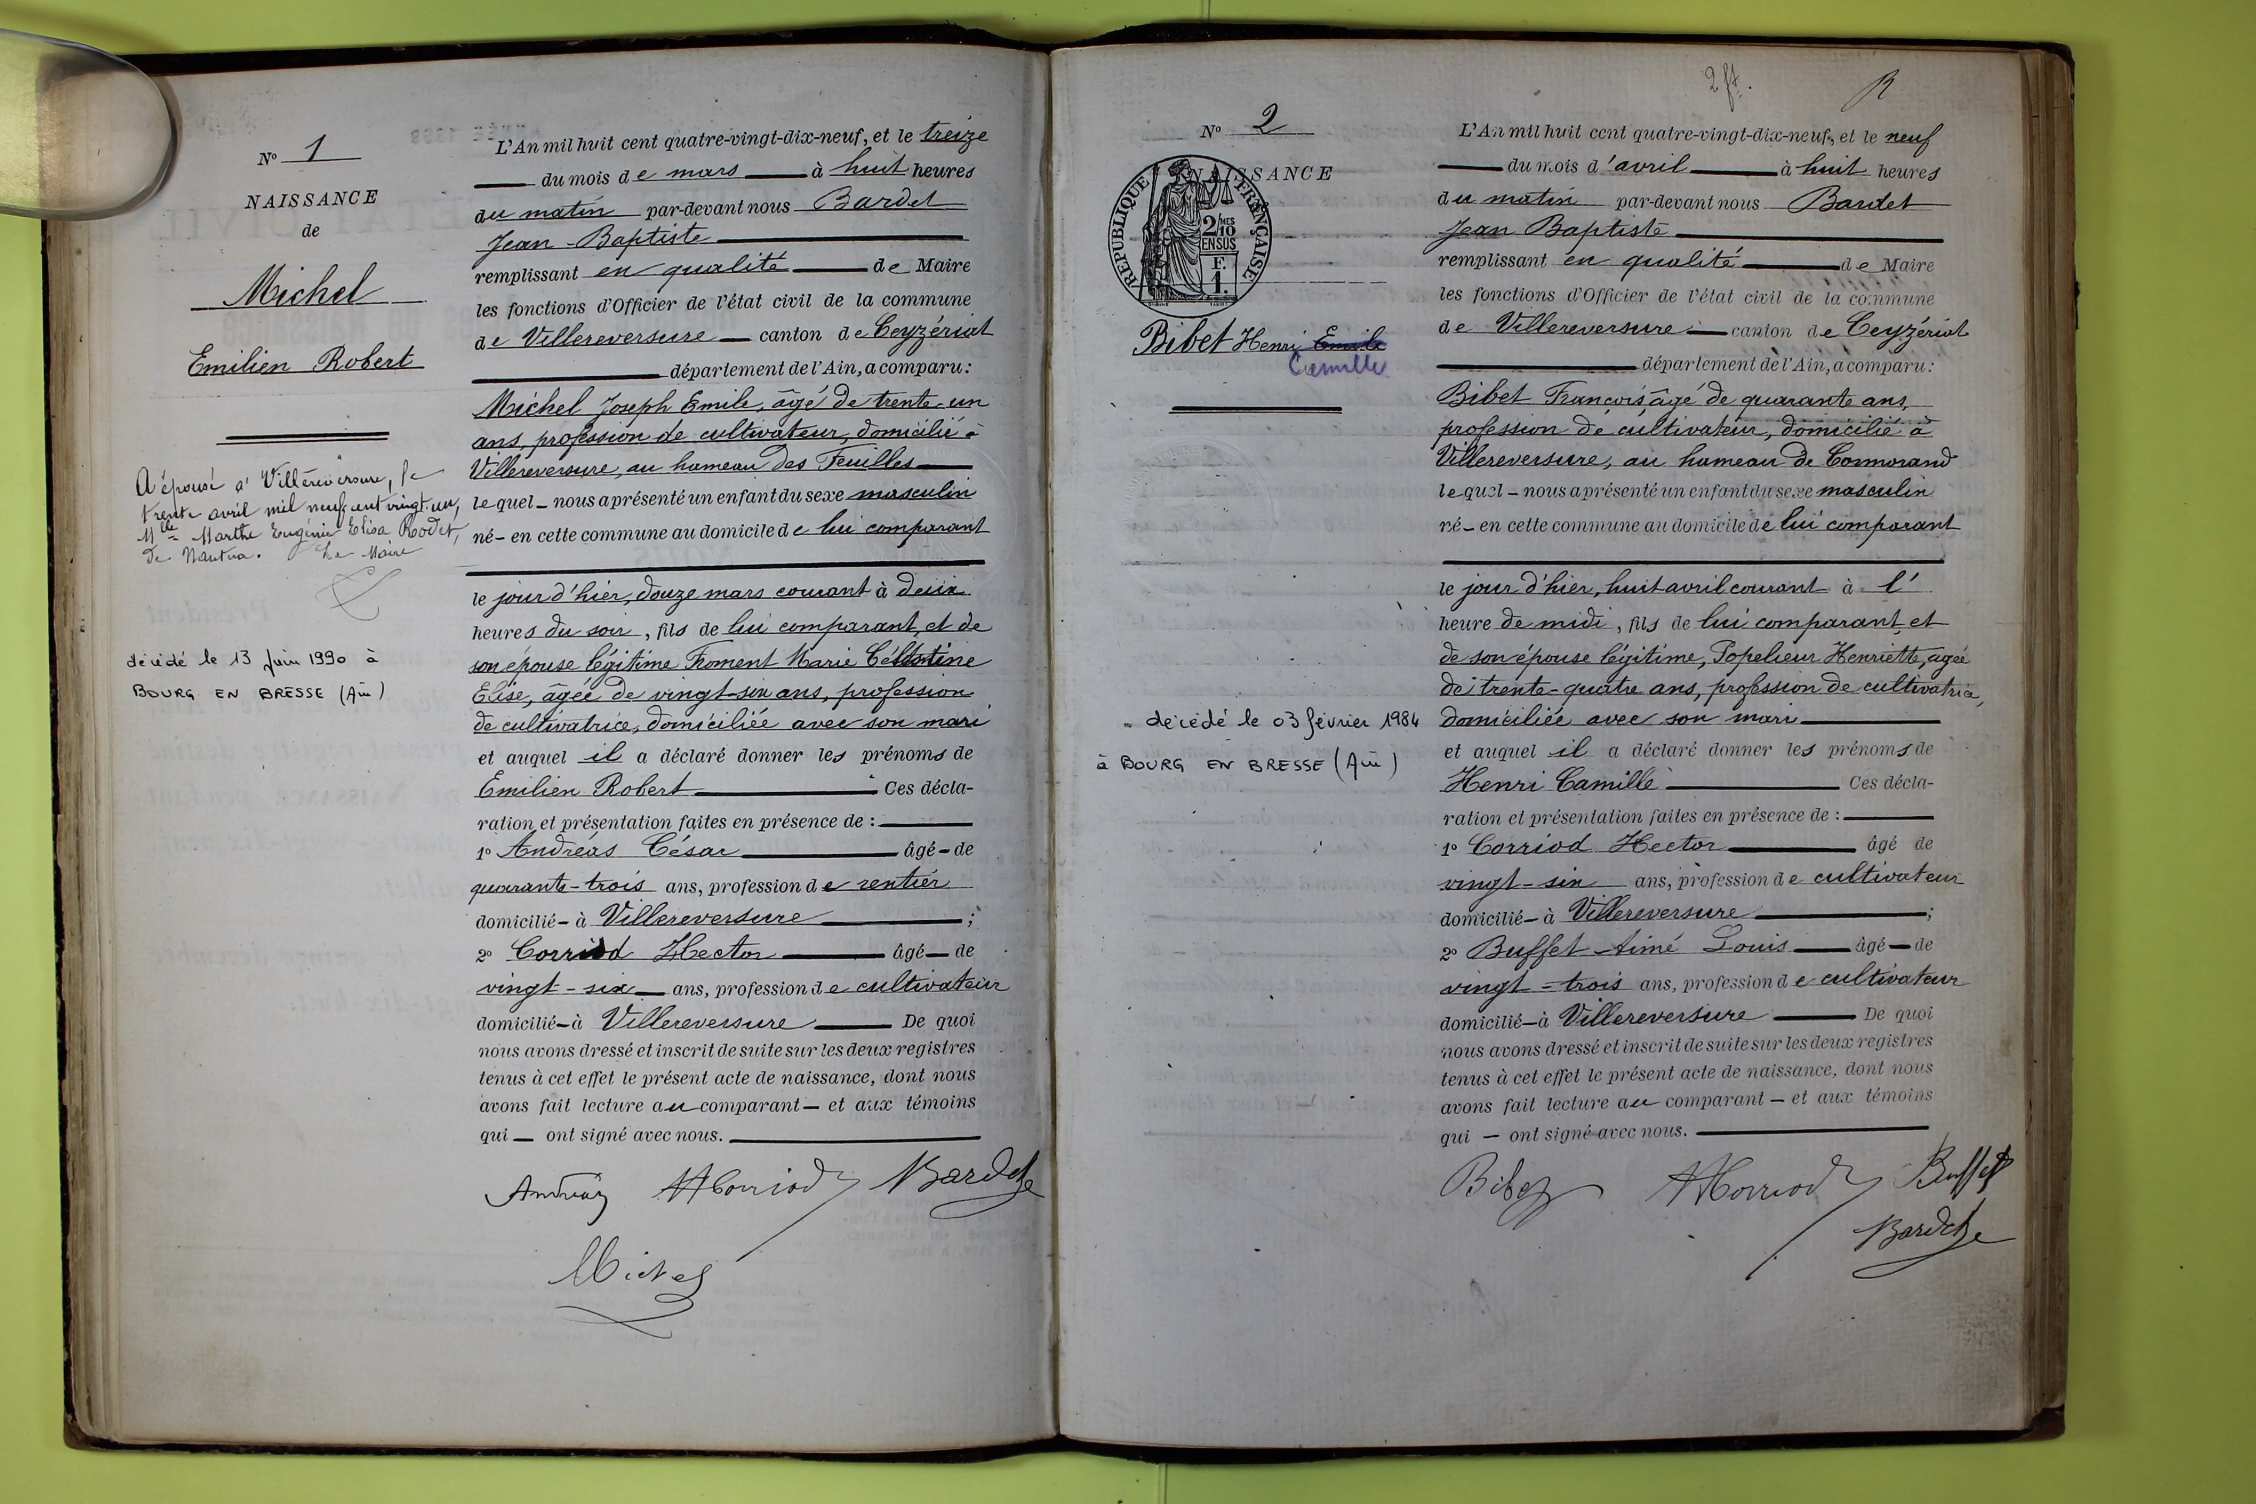 N° 1
NAISSANCE
de
Michel
Emilien Robert
A épousé à Villereversure, le
trente avril mil neuf cent vingt-un,
Mlle Marthe Eugénie Elisa Rodet,
de Nantua. Le Maire
décédé le 13 juin 1990 à
BOURG EN BRESSE (Ain)
L'An mil huit cent quatre-vingt-dix-neuf, et le treize
du mois de mars à huit heures
du matin par-devant nous Bardet
Jean-Baptiste
remplissant en qualité de Maire
les fonctions d'Officier de l'état civil de la commune
de Villereversure canton de Ceyzériat
département de l'Ain, a comparu:
Michel Joseph Emile, âgé de trente-un
ans, profession de cultivateur, domicilié à
Villereversure, au hameau des Feuilles
lequel nous a présenté un enfant du sexe masculin
né en cette commune au domicile de lui comparant
le jour d'hier, douze mars courant à deux
heures du soir, fils de lui comparant, et de
son épouse légitime Froment Marie Célestine
Elise, âgée de vingt-six ans, profession
de cultivatrice, domiciliée avec son mari
et auquel il a déclaré donner les prénoms de
Emilien Robert Ces décla-
ration et présentation faites en présence de :
1° Andréas César âgé de
quarante-trois ans, profession de rentier
domicilié à Villereversure ;
2° Corriod Hector âgé de
vingt-six ans, profession de cultivateur
domicilié à Villereversure De quoi
nous avons dressé et inscrit de suite sur les deux registres
tenus à cet effet le présent acte de naissance, dont nous
avons fait lecture au comparant et aux témoins
qui ont signé avec nous.
Andréas HCorriod Bardet
Michel
2 ft.
R
N° 2
NAISSANCE
RÉPUBLIQUE FRANÇAISE
2/10 MES
EN SUS
F.
1.
Bibet Henri Emile
Camille
décédé le 03 février 1984
à BOURG EN BRESSE (Ain)
L'An mil huit cent quatre-vingt-dix-neuf, et le neuf
du mois d'avril à huit heures
du matin par-devant nous Bardet
Jean Baptiste
remplissant en qualité de Maire
les fonctions d'Officier de l'état civil de la commune
de Villereversure canton de Ceyzériat
département de l'Ain, a comparu:
Bibet François âgé de quarante ans,
profession de cultivateur, domicilié à
Villereversure, au hameau de Cormorand
lequel nous a présenté un enfant du sexe masculin
né en cette commune au domicile de lui comparant
le jour d'hier, huit avril courant à l'
heure de midi, fils de lui comparant et
de son épouse légitime, Popelieur Henriette, âgée
de trente-quatre ans, profession de cultivatrice,
domiciliée avec son mari
et auquel il a déclaré donner les prénoms de
Henri Camille Ces décla-
ration et présentation faites en présence de :
1° Corriod Hector âgé de
vingt-six ans, profession de cultivateur
domicilié à Villereversure ;
2° Buffet Aimé Louis âgé de
vingt-trois ans, profession de cultivateur
domicilié à Villereversure De quoi
nous avons dressé et inscrit de suite sur les deux registres
tenus à cet effet le présent acte de naissance, dont nous
avons fait lecture au comparant et aux témoins
qui ont signé avec nous.
Bibet HCorriod Buffet
Bardet